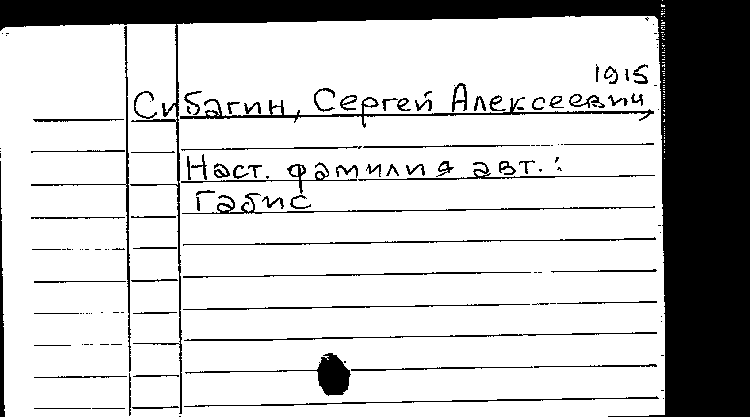 1915
Сибагин, Сергей Алексеевич,
Наст. фамилия авт.:
Габис